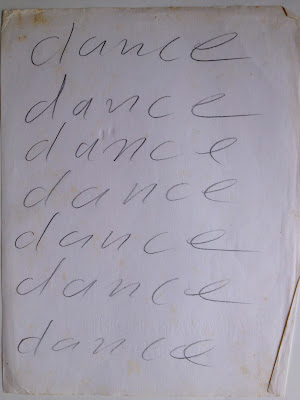 dance
dance
dance
dance
dance
dance
dance